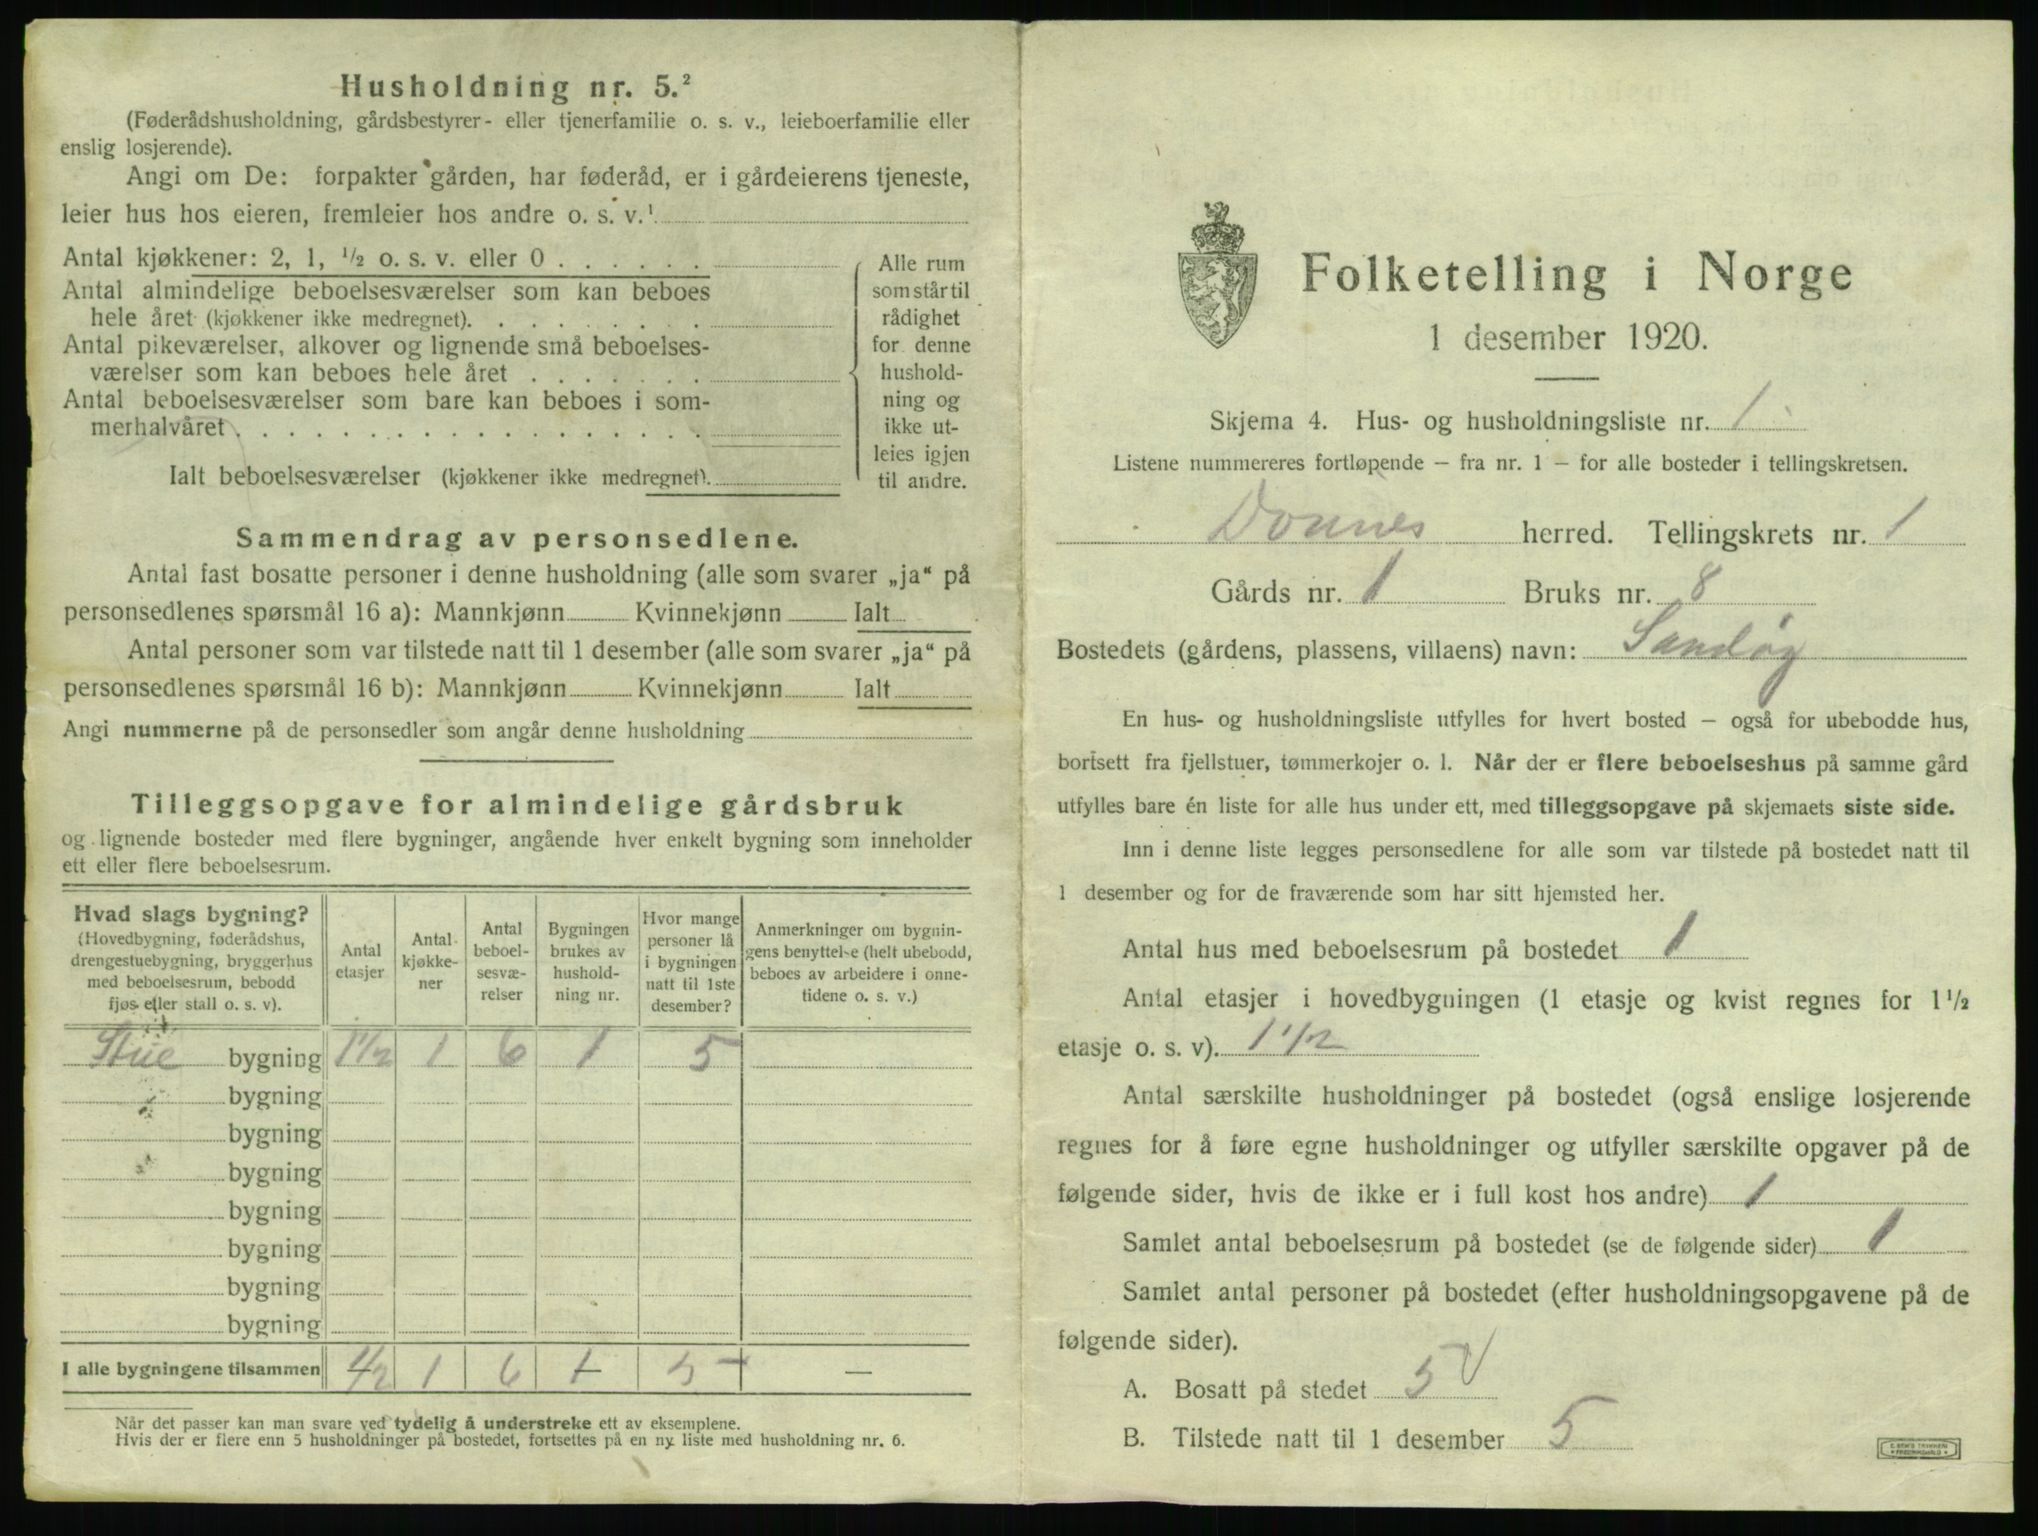 Husholdning nr. 5.²
(Føderådshusholdning, gårdsbestyrer- eller tjenerfamilie o. s. v., leieboerfamilie eller
enslig losjerende).
Angi om De: forpakter gården, har føderåd, er i gårdeierens tjeneste,
leier hus hos eieren, fremleier hos andre o. s. v.¹
Antal kjøkkener: 2, 1, ½ o. s. v. eller 0 . . . . . .
Antal almindelige beboelsesværelser som kan beboes
hele året (kjøkkener ikke medregnet). . . . . . . . .
Antal pikeværelser, alkover og lignende små beboelses-
værelser som kan beboes hele året . . . . . . .
Antal beboelsesværelser som bare kan beboes i som-
merhalvåret . . . . . . . . . . . . . . . . .
Ialt beboelsesværelser (kjøkkener ikke medregnet).
Alle rum
som står til
rådighet
for denne
hushold-
ning og
ikke ut-
leies igjen
til andre.
Sammendrag av personsedlene.
Antal fast bosatte personer i denne husholdning (alle som svarer „ja“ på
personsedlenes spørsmål 16 a): Mannkjønn Kvinnekjønn Ialt
Antal personer som var tilstede natt til 1 desember (alle som svarer „ja“ på
personsedlenes spørsmål 16 b): Mannkjønn Kvinnekjønn Ialt
Angi nummerne på de personsedler som angår denne husholdning
Tilleggsopgave for almindelige gårdsbruk
og lignende bosteder med flere bygninger, angående hver enkelt bygning som inneholder
ett eller flere beboelsesrum.
Hvad slags bygning?
(Hovedbygning, føderådshus,
drengestuebygning, bryggerhus
med beboelsesrum, bebodd
fjøs eller stall o. s. v).
Antal
etasjer
Antal
kjøkke-
ner
Antal
beboel-
sesvæ-
relser
Bygningen
brukes av
hushold-
ning nr.
Hvor mange
personer lå
i bygningen
natt til 1ste
desember?
Anmerkninger om bygnin-
gens benyttelse (helt ubebodd,
beboes av arbeidere i onne-
tidene o. s. v.)
Stue bygning 1½ 1 6 1 5
bygning
bygning
bygning
bygning
bygning
bygning
bygning
I alle bygningene tilsammen 1½ 1 6 + 5 + —
Når det passer kan man svare ved tydelig å understreke ett av eksemplene.
Hvis der er flere enn 5 husholdninger på bostedet, fortsettes på en ny liste med husholdning nr. 6.
Folketelling i Norge
1 desember 1920.
Skjema 4. Hus- og husholdningsliste nr. 1
Listene nummereres fortløpende – fra nr. 1 – for alle bosteder i tellingskretsen.
Dønnes herred. Tellingskrets nr. 1
Gårds nr. 1 Bruks nr. 8
Bostedets (gårdens, plassens, villaens) navn: Sandøy
En hus- og husholdningsliste utfylles for hvert bosted – også for ubebodde hus,
bortsett fra fjellstuer, tømmerkojer o. l. Når der er flere beboelseshus på samme gård
utfylles bare én liste for alle hus under ett, med tilleggsopgave på skjemaets siste side.
Inn i denne liste legges personsedlene for alle som var tilstede på bostedet natt til
1 desember og for de fraværende som har sitt hjemsted her.
Antal hus med beboelsesrum på bostedet 1
Antal etasjer i hovedbygningen (1 etasje og kvist regnes for 1½
etasje o. s. v). 1½
Antal særskilte husholdninger på bostedet (også enslige losjerende
regnes for å føre egne husholdninger og utfyller særskilte opgaver på de
følgende sider, hvis de ikke er i full kost hos andre) 1
Samlet antal beboelsesrum på bostedet (se de følgende sider) 1
Samlet antal personer på bostedet (efter husholdningsopgavene på de
følgende sider).
A. Bosatt på stedet 5 √
B. Tilstede natt til 1 desember 5